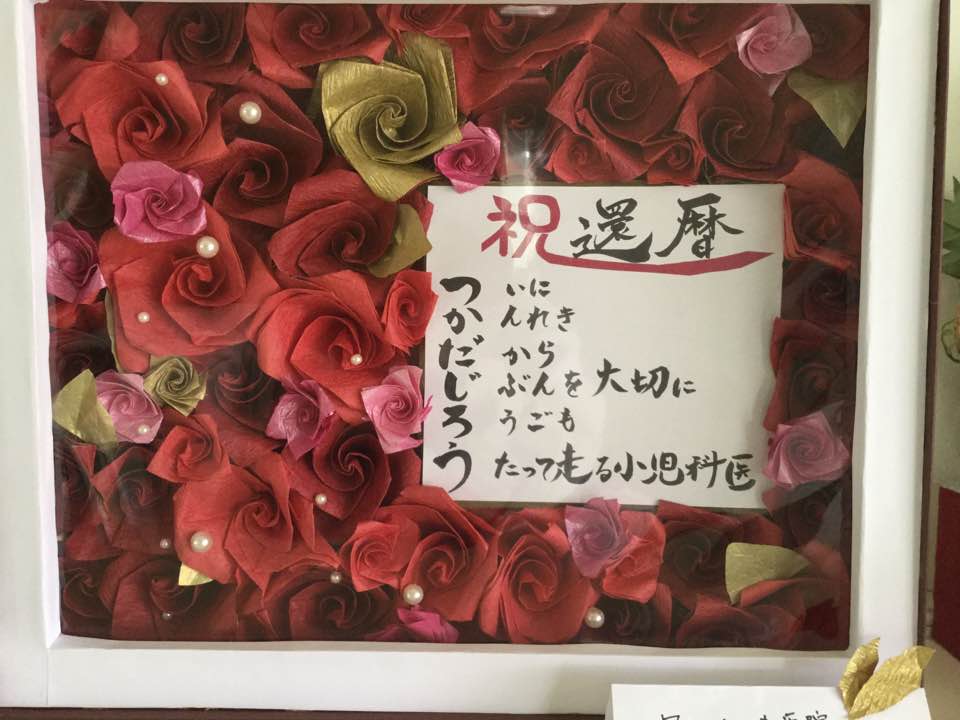 祝還暦
ついに
かんれき
だから
じぶんを大切に
ろうごも
うたって走る小児科医